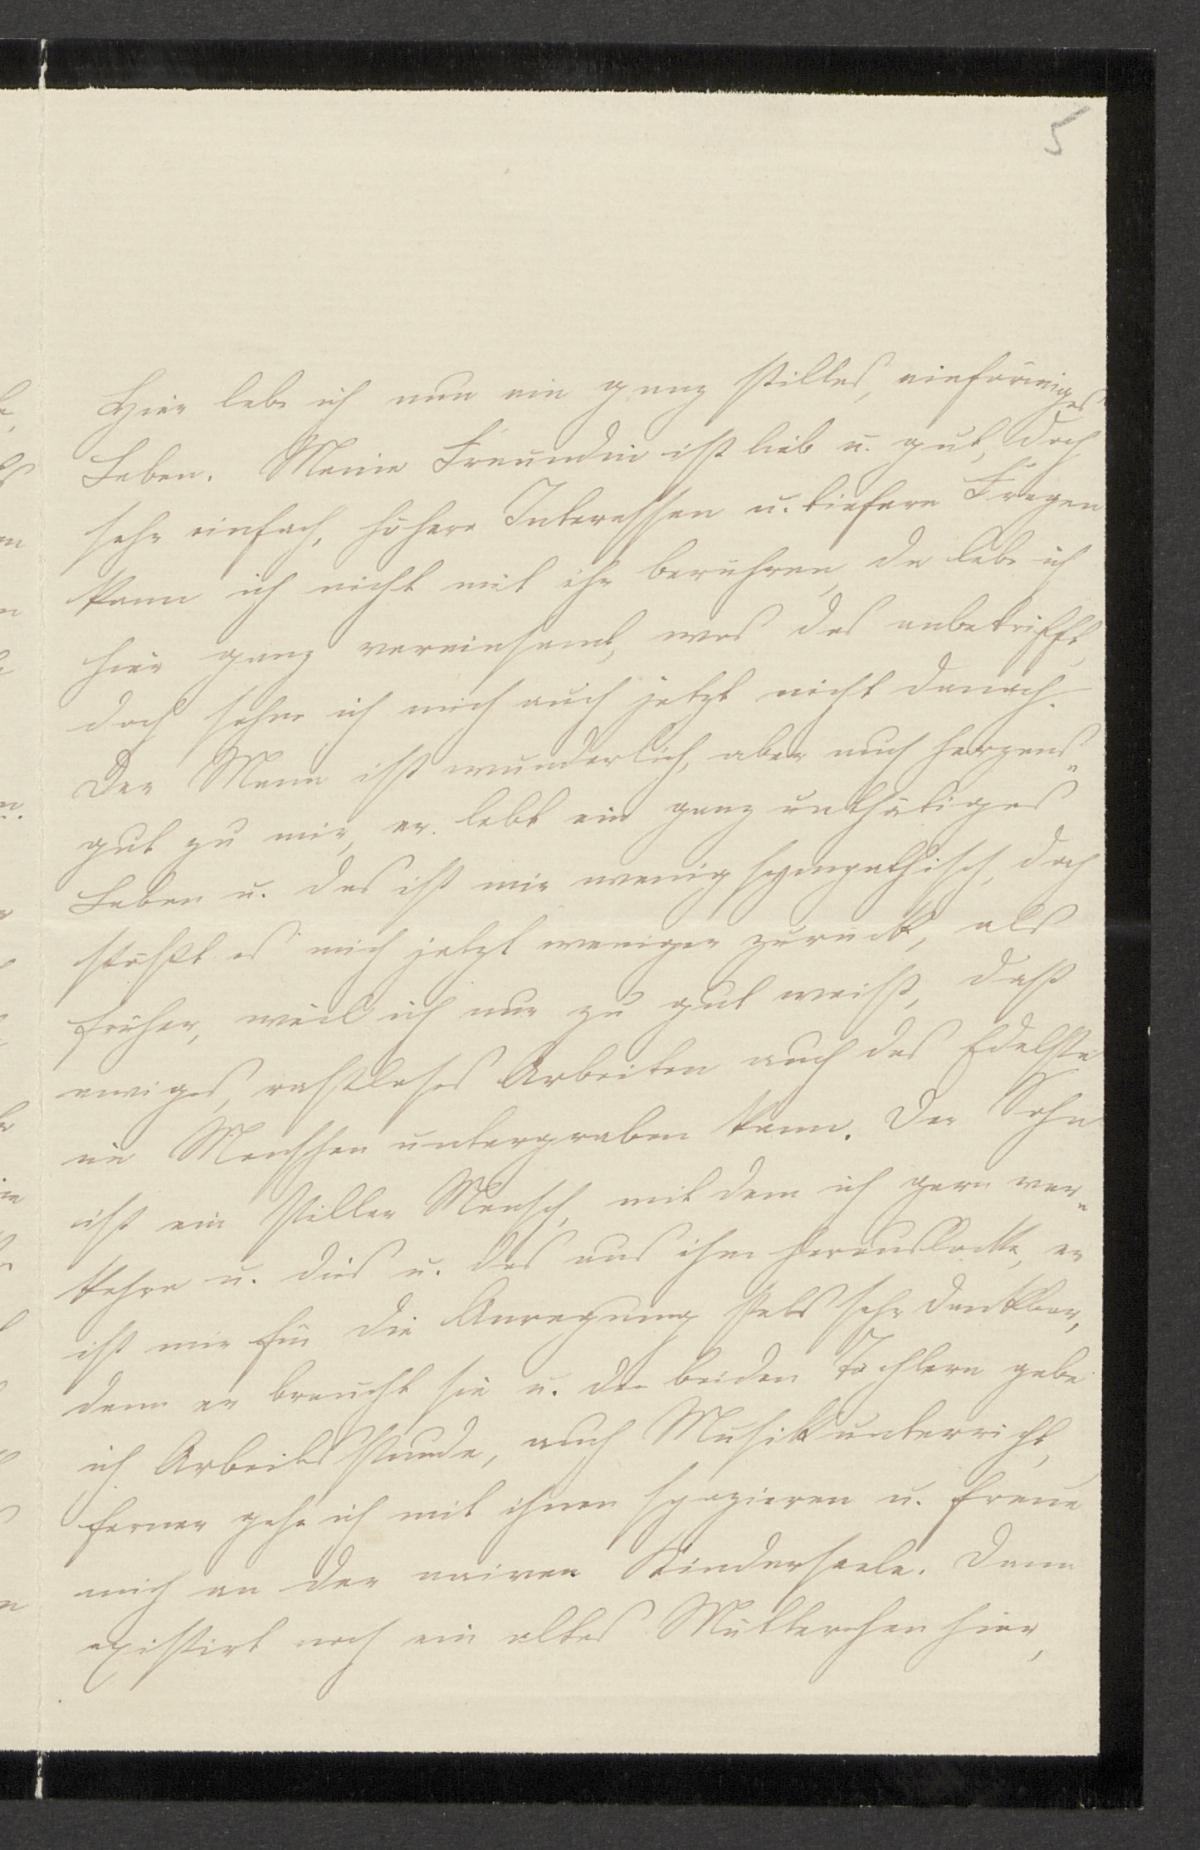 5
Hier lebe ich nun ein ganz stilles, einförmiges
Leben. Meine Freundin ist lieb u. gut, doch
sehr einfach, höhere Interessen u. tiefere Fragen
kann ich nicht mit ihr berühren, da lebe ich
hier ganz vereinsamt, was das anbetrifft,
doch sehne ich mich auch jetzt nicht danach.
Der Mann ist wunderlich, aber auch herzens„
gut zu mir, er lebt ein ganz unthätiges
Leben u. das ist mir wenig sympathisch, doch
stößt es mich jetzt weniger zurück, als
früher, weil ich nur zu gut weiß, daß
ewiges, rastloses Arbeiten auch das Edelste
im Menschen untergraben kann. Der Sohn
ist ein stiller Mensch, mit dem ich gern ver„
kehre u. dies u. das aus ihm herauslocke, er
ist mir für die Anregung stets sehr dankbar,
denn er braucht sie u. den beiden Töchtern gebe
ich Arbeitsstunde, auch Musikunterricht,
ferner gehe ich mit ihnen spazieren u. freue
mich an der naiven Kinderseele. Dann
existirt noch ein altes Mütterchen hier,